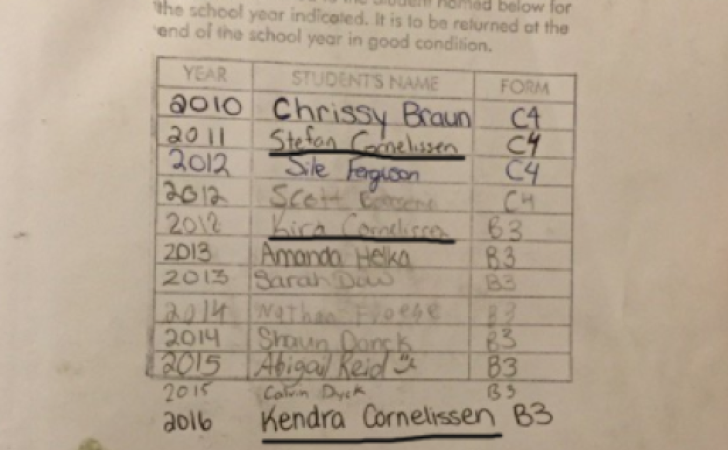 the student named below for
the school year indicated. It is to be returned at the
end of the school year in good condition.
YEAR STUDENT'S NAME FORM
2010 Chrissy Braun C4
2011 Stefan Cornelissen C4
2012 Sile Ferguson C4
2012 Scott C4
2012 Kira Cornelissen B3
2013 Amanda Helka B3
2013 Sarah Dow B3
2014 Nathan Froese B3
2014 Shaun Donck B3
2015 Abigail Reid B3
2015 Calvin Dyck B3
2016 Kendra Cornelissen B3